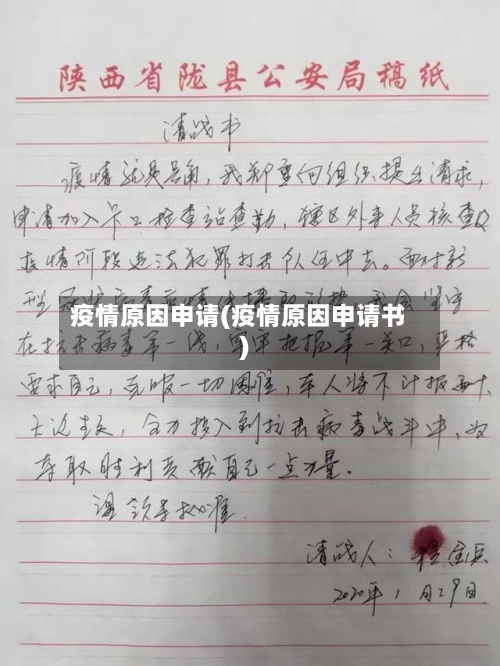 陕西省陇县公安局稿纸
请战书
疫情就是号角,我郑重向组织提出请求,
申请加入卡口检查站查勤,辖区外来人员核查及
疫情阶段违法犯罪打击队伍中去。面对新
疫情原因申请(疫情原因申请书
)
在抗击病毒第一线,牢牢把握第一关口,严格
要求自己,克服一切困难,本人将不计报酬
无论生死,全力投入到抗击病毒战斗中,为
夺取胜利贡献自己一点力量。
请领导批准
请战人:
2020年1月29日